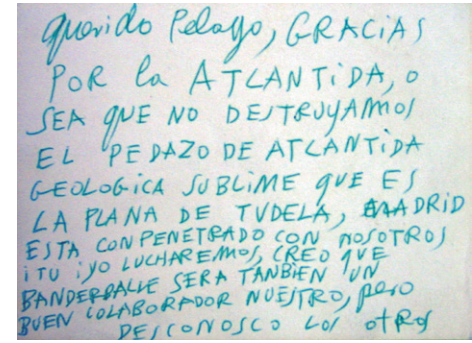 Querido Pelayo, GRACIAS
POR la ATLANTIDA, o
SEA QUE NO DESTRUYAMOS
EL PEDAZO DE ATLANTIDA
GEOLOGICA SUBLIME QUE ES
LA PLANA DE TUDELA, MADRID
ESTA CONPENETRADO CON NOSOTROS
iTU iYO LUCHAREMOS, CREO QUE
BANDERBALLE SERA TANBIEN UN
BUEN COLABORADOR NUESTRO, pero
DESCONOSCO LOS OTROS